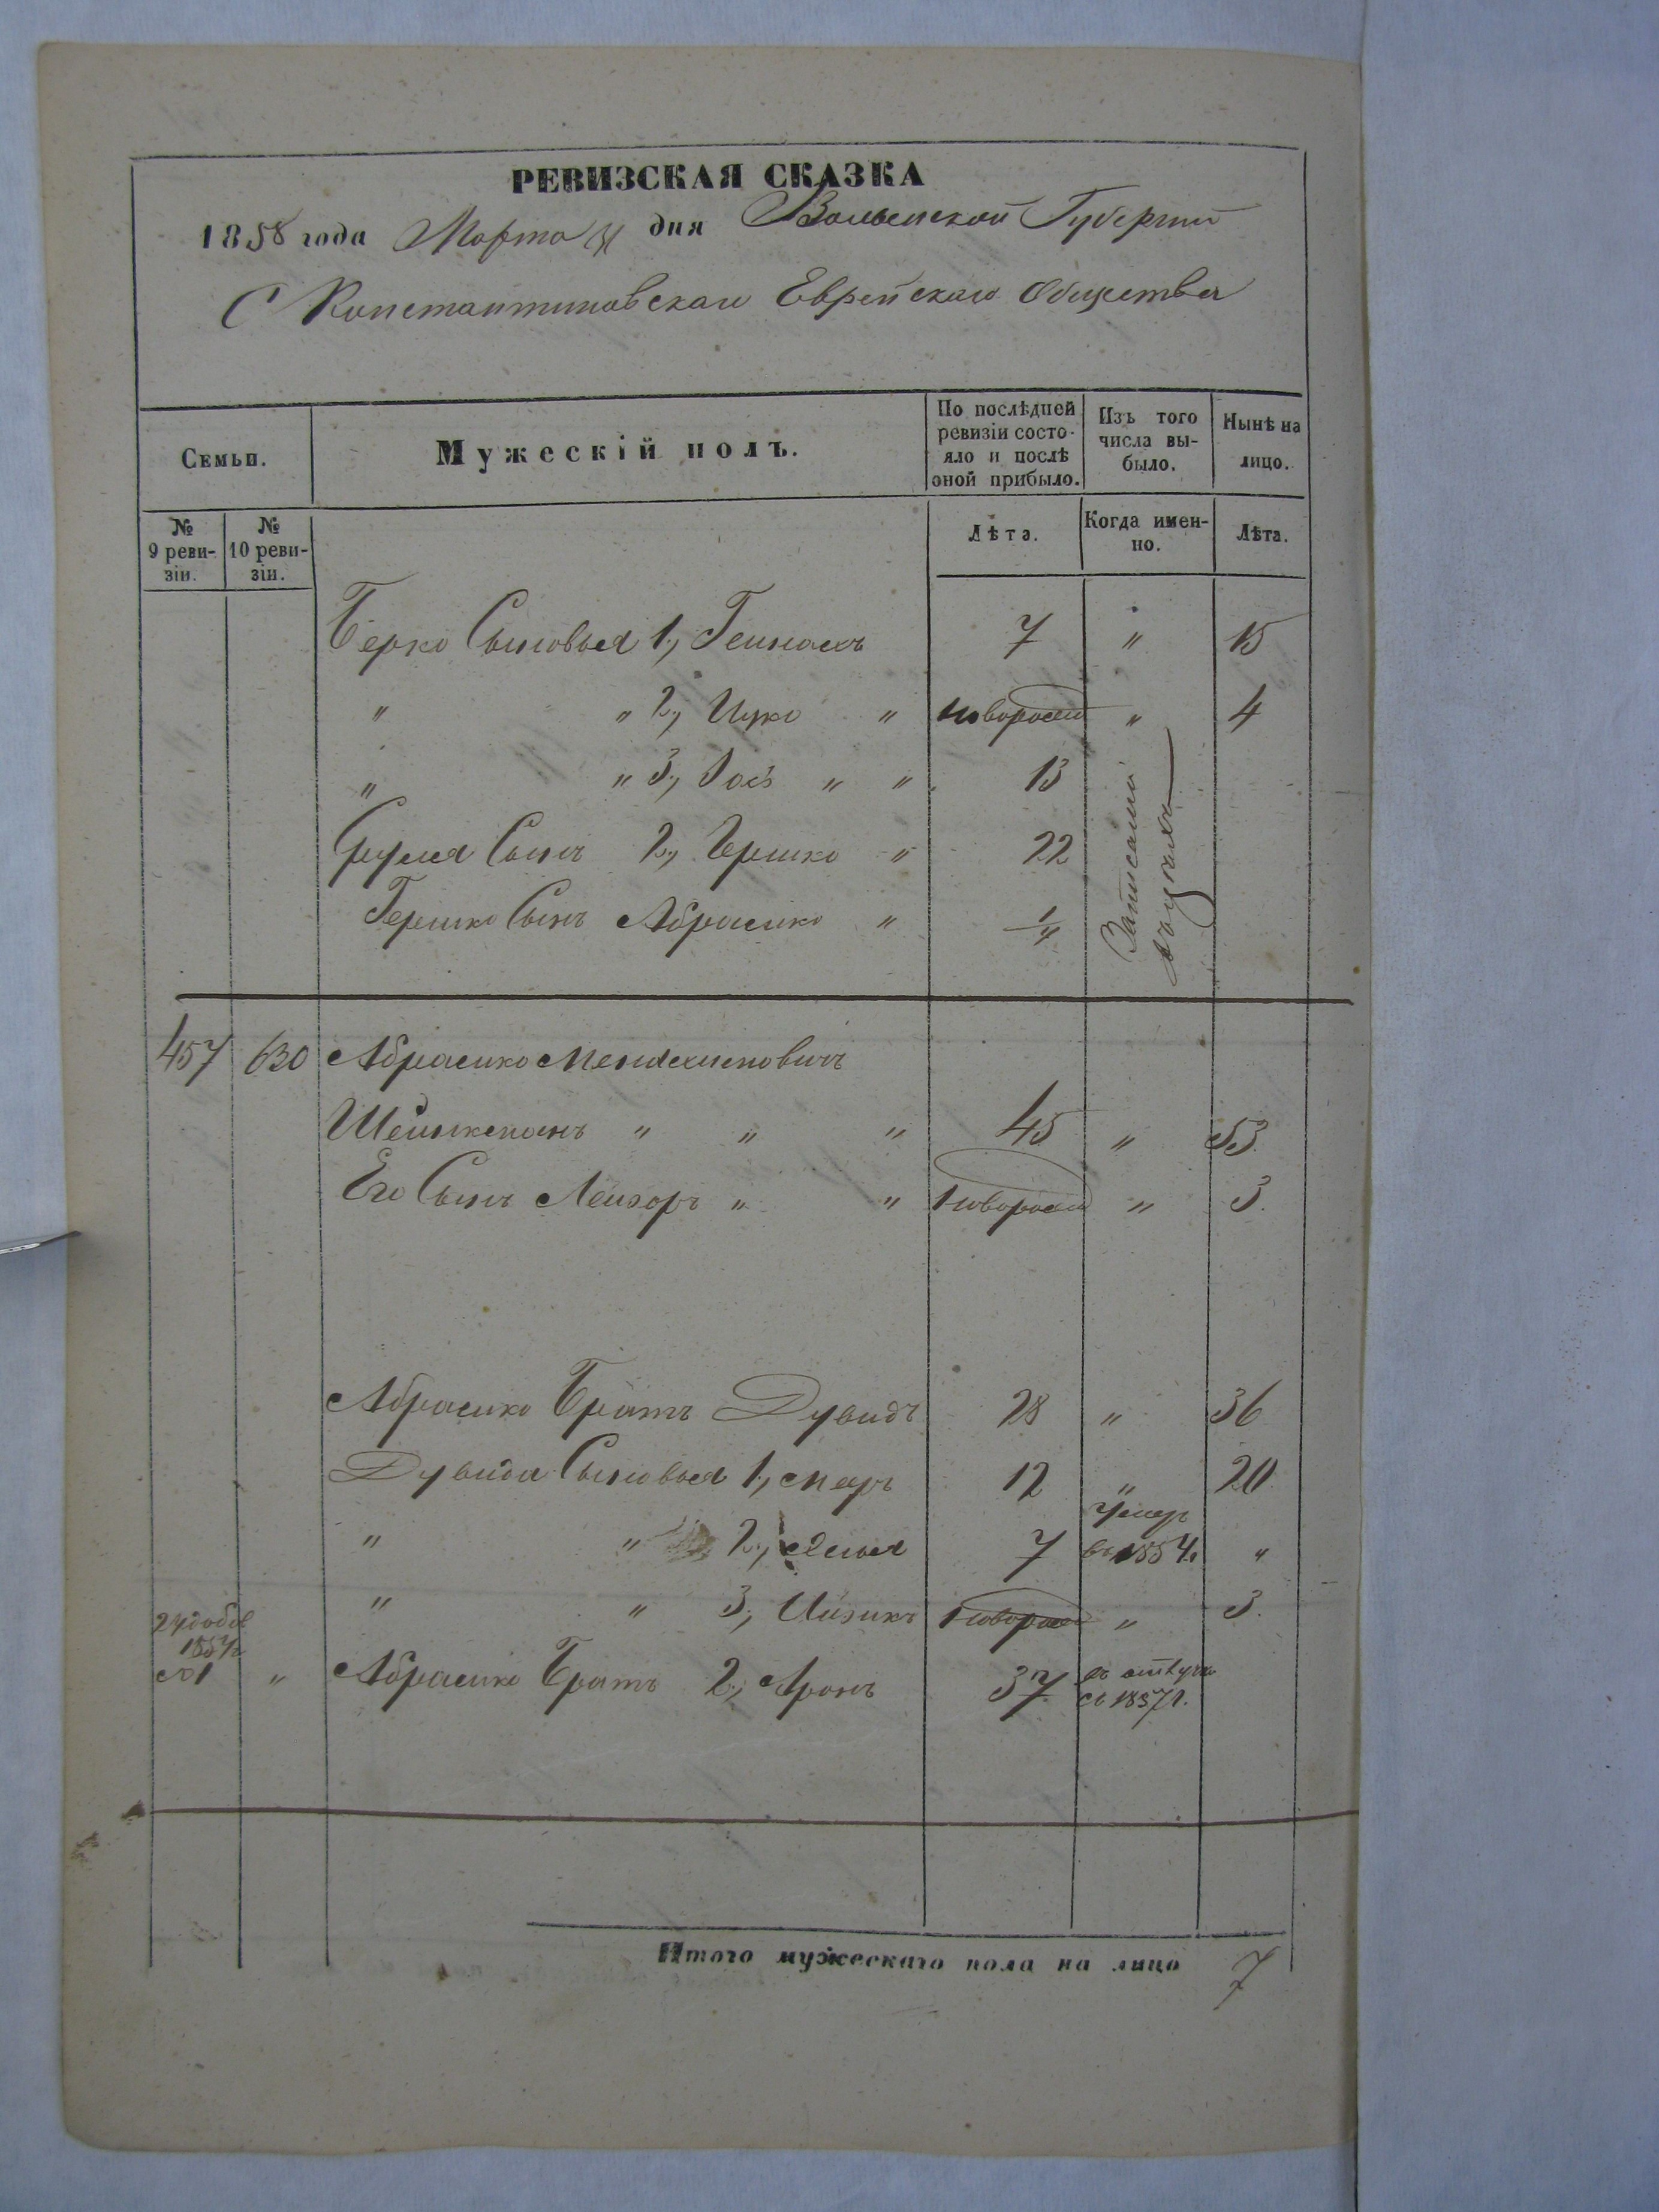 РЕВИЗСКАЯ СКАЗКА
1858 года Марта дня Волынской Губернии
С Константиновскаго Еврейскаго Общества
Семьи. Мужескій полъ. По послѣдней ревизіи состояло и послѣ оной прибыло. Изъ того числа выбыло. Нынѣ на лицо.
№ 9 ревизіи. № 10 ревизіи. Лѣта. Когда именно. Лѣта.
Берко Сыновья 1, 7 " 15
" " 2, Ицко " новорожд " 4
" " 3, " " 13
Сруля Сынъ 2, Гершко " 22
Гершко Сынъ Абрамко " 1/4
Записаны
457 630 Абрамко
" " " 45 " 53
Его Сынъ Лейзоръ " " новорожд " 3.
Абрамко Братъ Дувидъ 28 " 36
Дувида Сыновья 1, Меръ 12 " 20
" " 2, 7 Умеръ въ 1854. "
" " 3, Айзикъ новорожд " 3.
1857г
№1 " Абрамко Братъ 2, Аронъ 37 съ 1857г.
Итого мужескаго пола на лицо 7